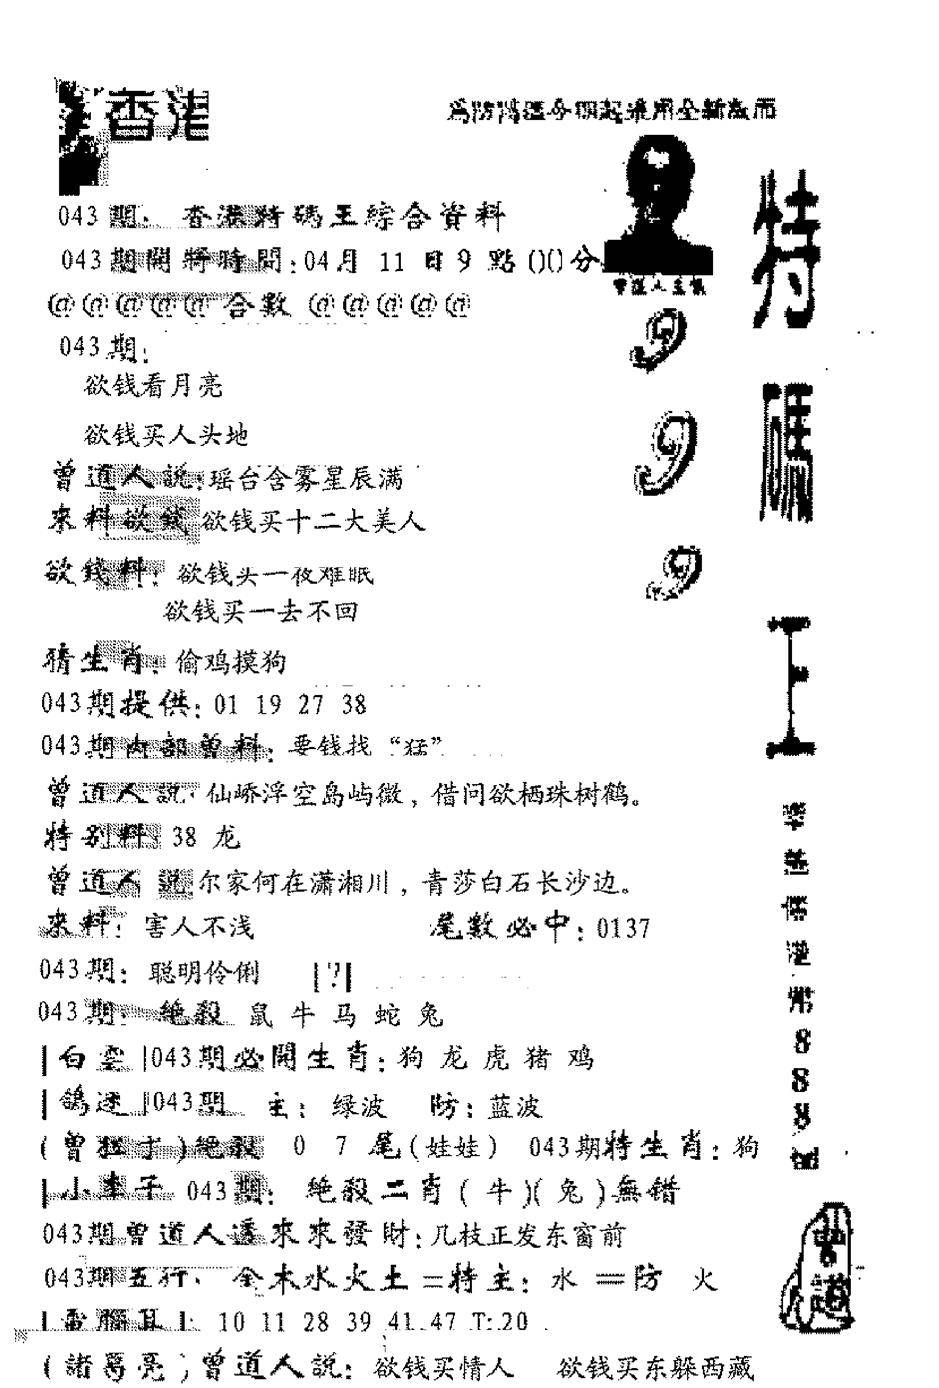 香港
為防
043期: 香港特碼王綜合資料
043期開將時間:04月 11 日9 點()()分
@@@@@合數 @@@@@
曾道人
043期:
欲钱看月亮
欲钱买人头地
曾道人説:瑶台含雾星辰满
來料欲錢 欲钱买十二大美人
欲錢料: 欲钱买一夜难眠
欲钱买一去不回
猜生肖: 偷鸡摸狗
043期提供: 01 19 27 38
043期内部曾料: 要钱找 “猛”
曾道人説: 仙峤浮空岛屿微, 借问欲栖珠树鹤。
特别料: 38 龙
曾道人 説: 尔家何在潇湘川, 青莎白石长沙边。
來料: 害人不浅 尾數必中: 0137
043期: 聪明伶俐 |?|
043期: 绝殺 鼠 牛 马 蛇 兔
|白雲|043期必開生肖: 狗 龙 虎 猪 鸡
043期 主: 绿波 防: 蓝波
0 7 尾(娃娃) 043期特生肖: 狗
043期: 绝殺二肖(牛)(兔)無錯
043期曾道人透來來發財: 几枝正发东窗前
043期五行: 金木水火土=特主: 水 =防 火
10 11 28 39 41 47 T:20
(諸葛亮)曾道人説: 欲钱买情人 欲钱买东躲西藏
999
特碼王
888
曾道